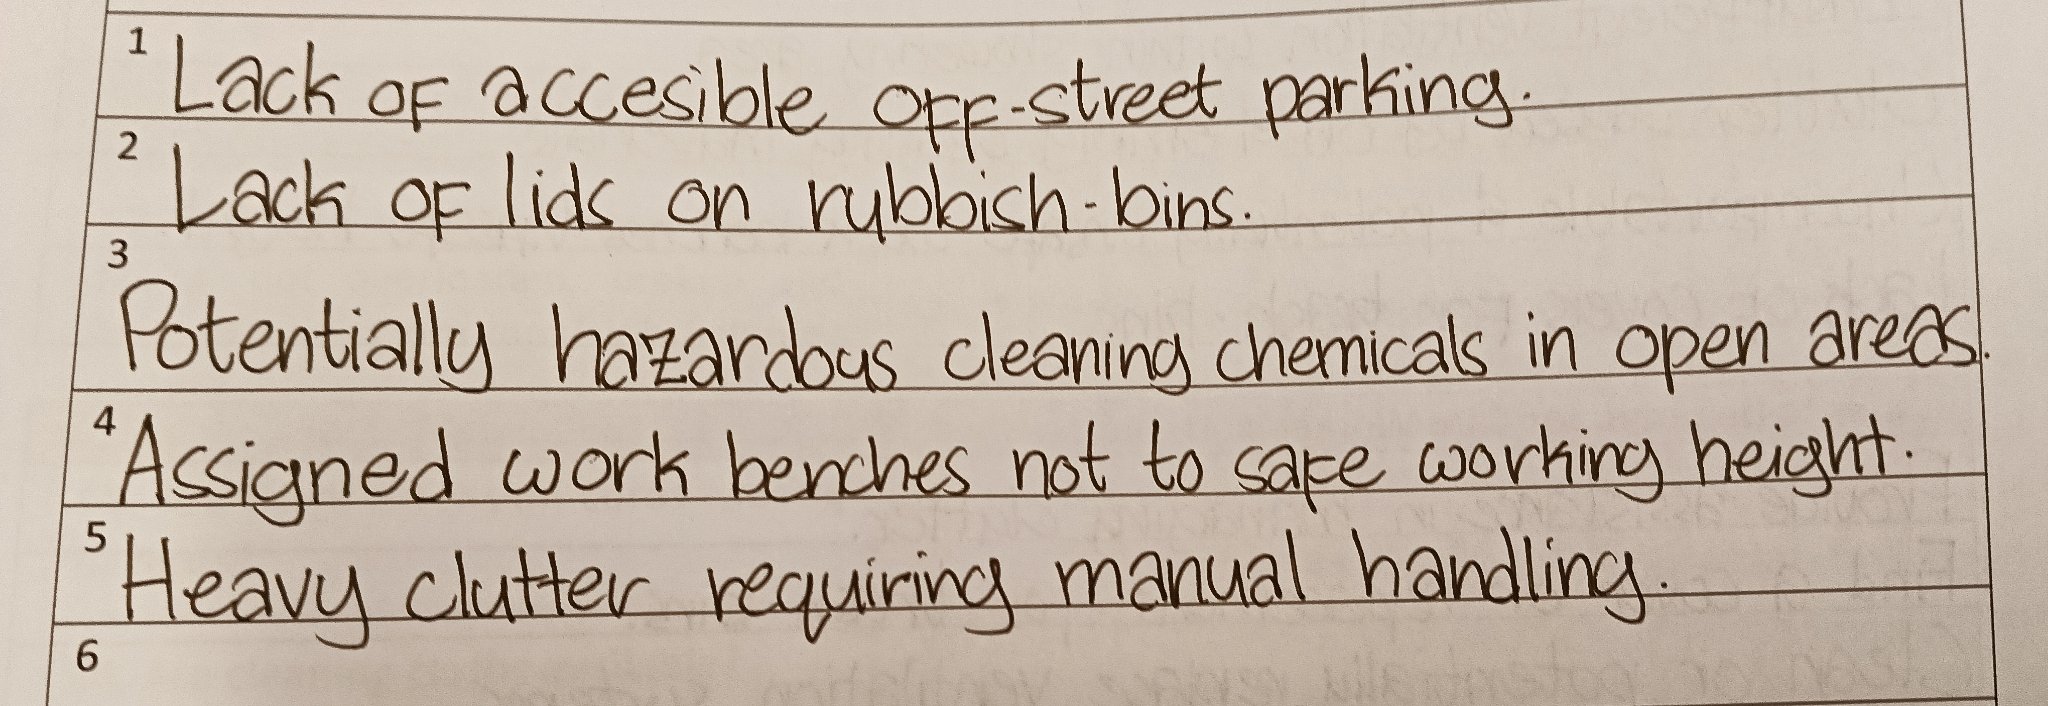 1 Lack of accesible off-street parking.
2 Lack of lids on rubbish-bins.
3
Potentially hazardous cleaning chemicals in open areas.
4 Assigned work benches not to safe working height.
5 Heavy clutter requiring manual handling.
6